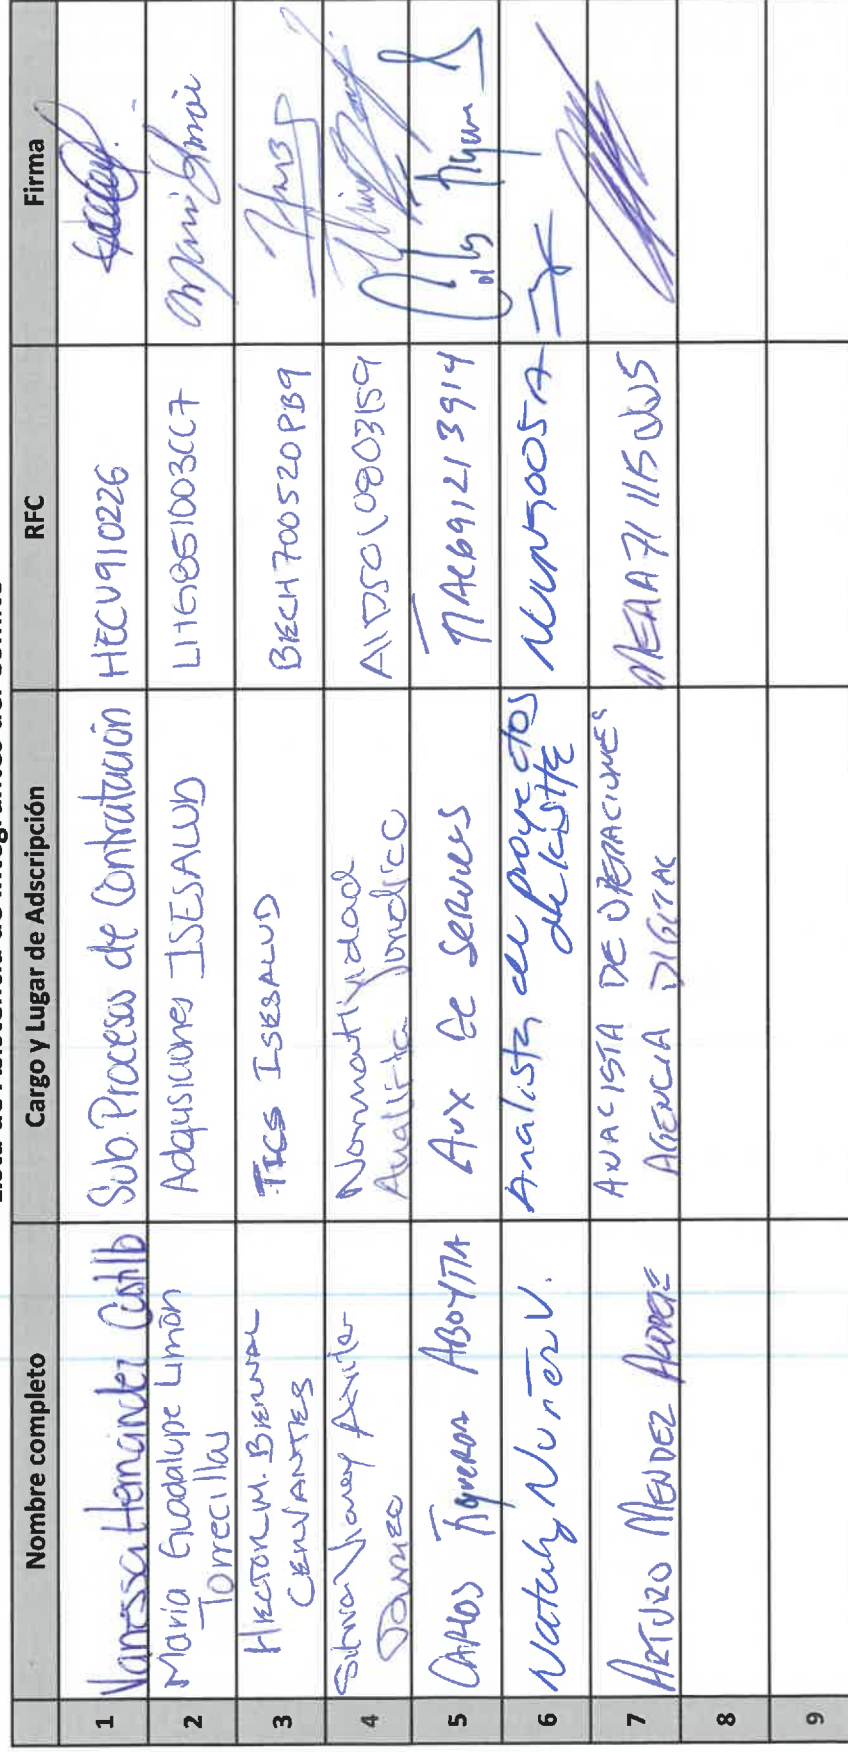 Nombre completo Cargo y Lugar de Adscripción RFC Firma
1 Vanessa Hernández Castillo Sub. Procesos de Contratación HECV910226
2 María Guadalupe Limón Torrecillas Adquisiciones ISESALUD LITG851003CC7
3 HECTOR M. BERNAL CERVANTES TICS ISESALUD BECH700520PB9
4 Normatividad Analista Jurídico
5 CARLOS Figueroa ABOYTIA Aux de Servicios
6 Nataly Nuñez V. Analista de proyectos
7 ARTURO MENDEZ ANALISTA DE OPERACIONES AGENCIA DIGITAL MEAA711115
8
9